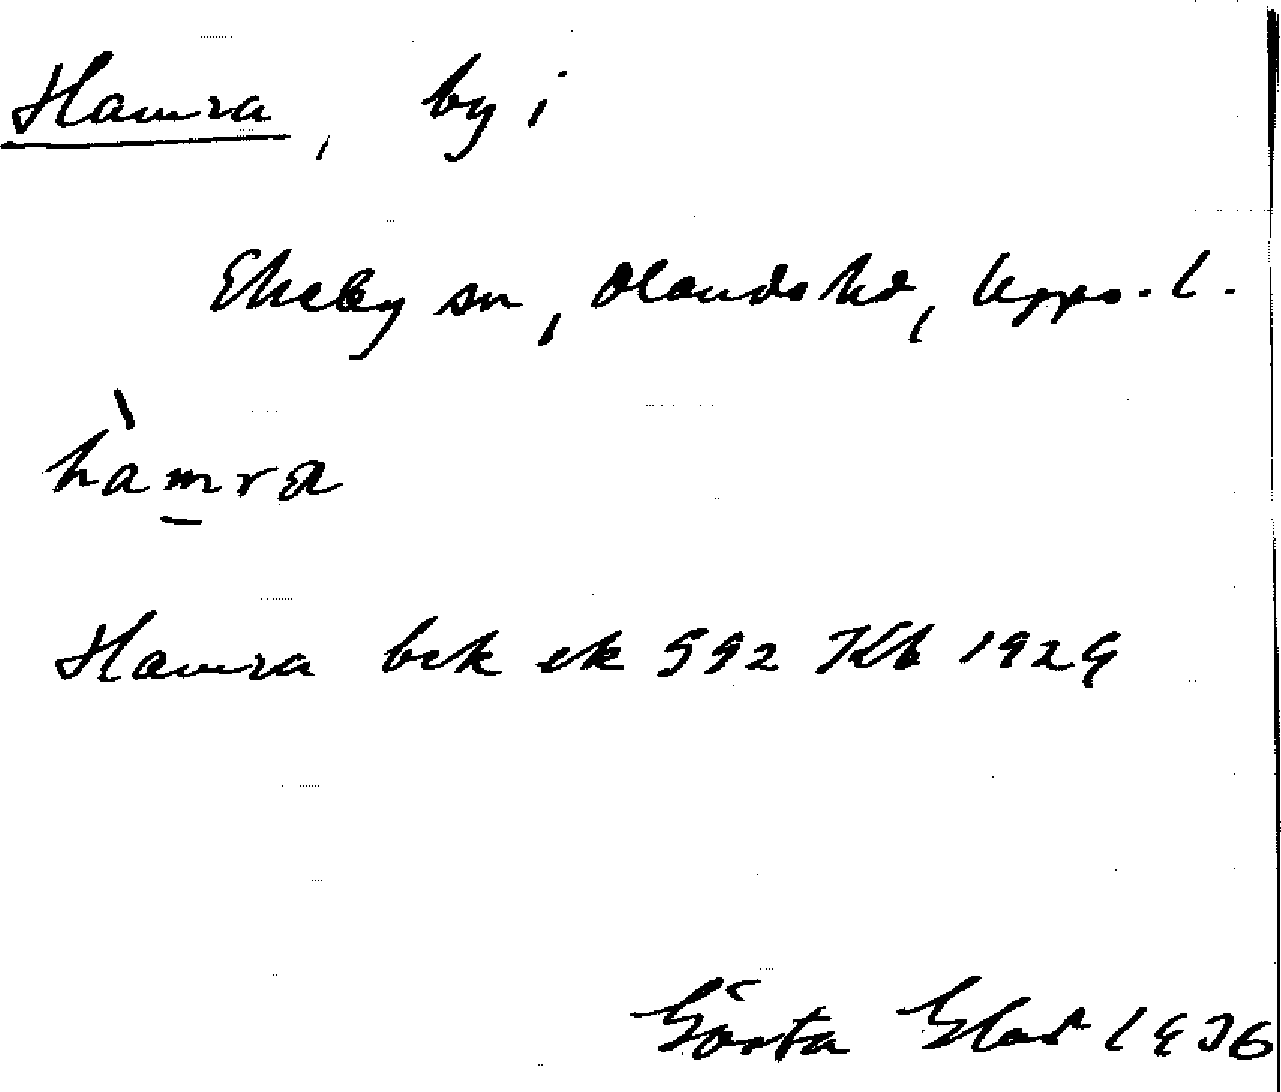 Hamra, by i
Ekeby sn, Olands hd, Upps. l.
hàmra
Hamra bek ek 592 Kb 1929
Gösta Glad 1936